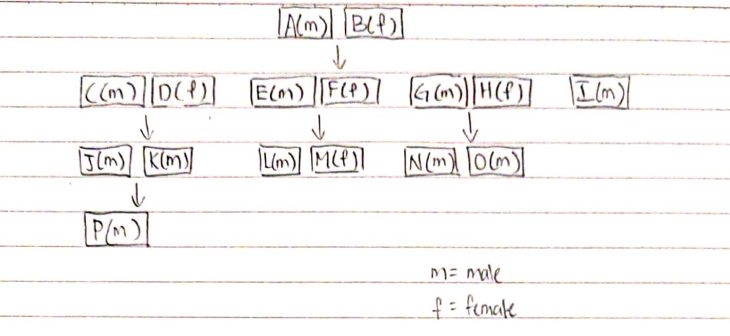 A(m) B(f)
C(m) D(f) E(m) F(f) G(m) H(f) I(m)
J(m) K(m) L(m) M(f) N(m) O(m)
P(m)
m= male
f = female